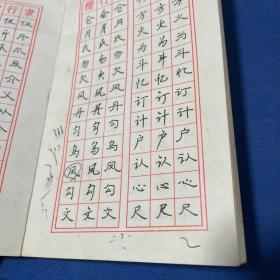 行 隶
楷 仓月氏勿欠风丹匀乌凤勾文
行 仓月氏勿欠风丹匀乌凤勾文
仓月氏勿欠风丹匀乌凤勾文
方火为斗忆订计户认心尺
方火为斗忆订计户认心尺
方火为斗忆订计户认心尺